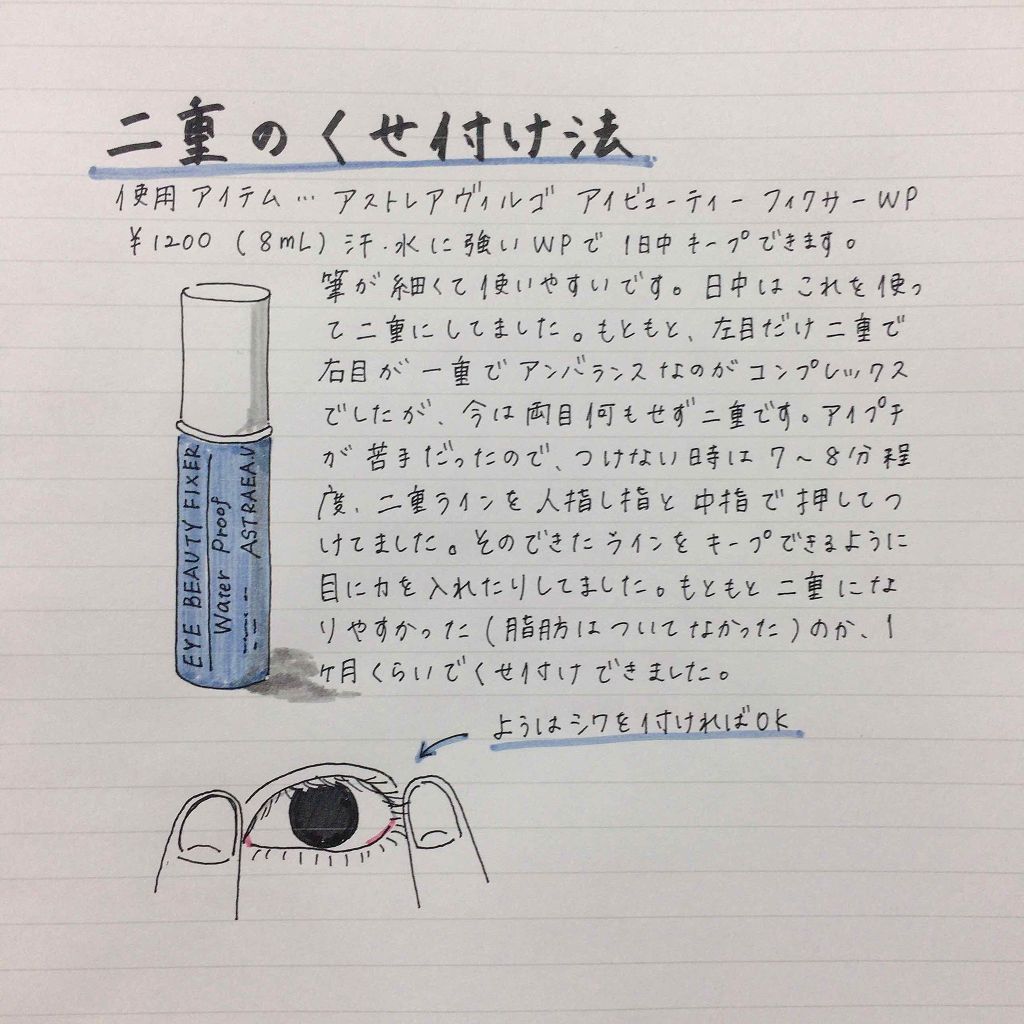 二重のくせ付け法
使用アイテム…アストレアヴィルゴ アイビューティーフィクサーWP
¥1200 (8mL) 汗・水に強いWPで 1日中キープできます。
筆が細くて使いやすいです。日中はこれを使っ
て二重にしてました。もともと、左目だけ二重で
右目が一重でアンバランスなのがコンプレックス
でしたが、今は両目何もせず二重です。アイプチ
が苦手だったので、つけない日時は7〜8分程
度、二重ラインを人指し指と中指で押してつ
けてました。そのできたラインをキープできるように
目に力を入れたりしてました。もともと二重にな
りやすかった(脂肪はついてなかった)のか、1
ヶ月くらいでくせ付けできました。
ようはシワを付ければOK
EYE BEAUTY FIXER
Water Proof
ASTRAEA.V